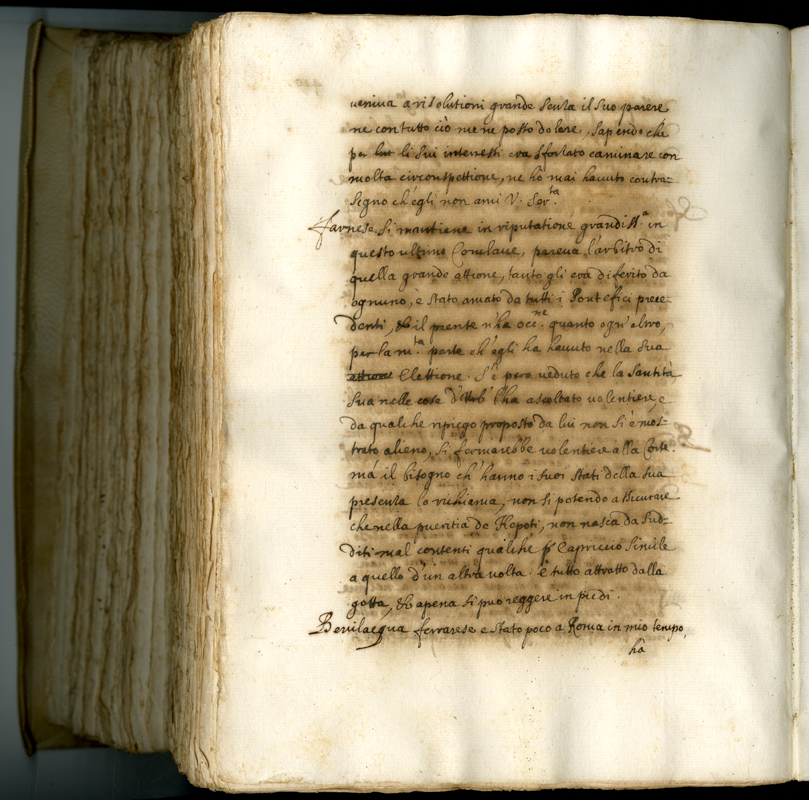 ueniua a risolutioni grande senza il suo parere
ne con tutto ciò me ne posso dolere, sapendo che
per lui li sui interessi era sforzato caminare con
molta circonspettione, ne hò mai hauuto contra-
segno ch'egli non ami V. Ser.ta
Farnese si mantiene in riputatione grandiss.a in
questo ultimo Conclaue, pareua l'arbitro di
quella grande attione, tanto gli era diferito da
ognuno, è stato amato da tutti i Pontefici prece-
denti, et il pñente n'ha occ.ne quanto ogn'altro,
per la m.ta parte ch'egli ha hauuto nella sua
attione Elettione. S'è pero ueduto che la Santità
sua nelle cose l'ha ascoltato uolentiere, e
da qualche ripiego proposto da lui non si è mos-
trato alieno, si fermarebbe uolentiere alla Corte
má il bisogno ch'hanno i suoi stati della sua
presenza lo richiama, non si potendo assicurare
che nella pueritia de Nepoti, non nasca da sud-
diti mal contenti qualche Capriccio simile
a quello d'un altra uolta. è tutto attratto dalla
gotta, et apena si puo reggere in piedi.
Beuilacqua ferrarese e stato poco a Roma in mio tempo,
hà